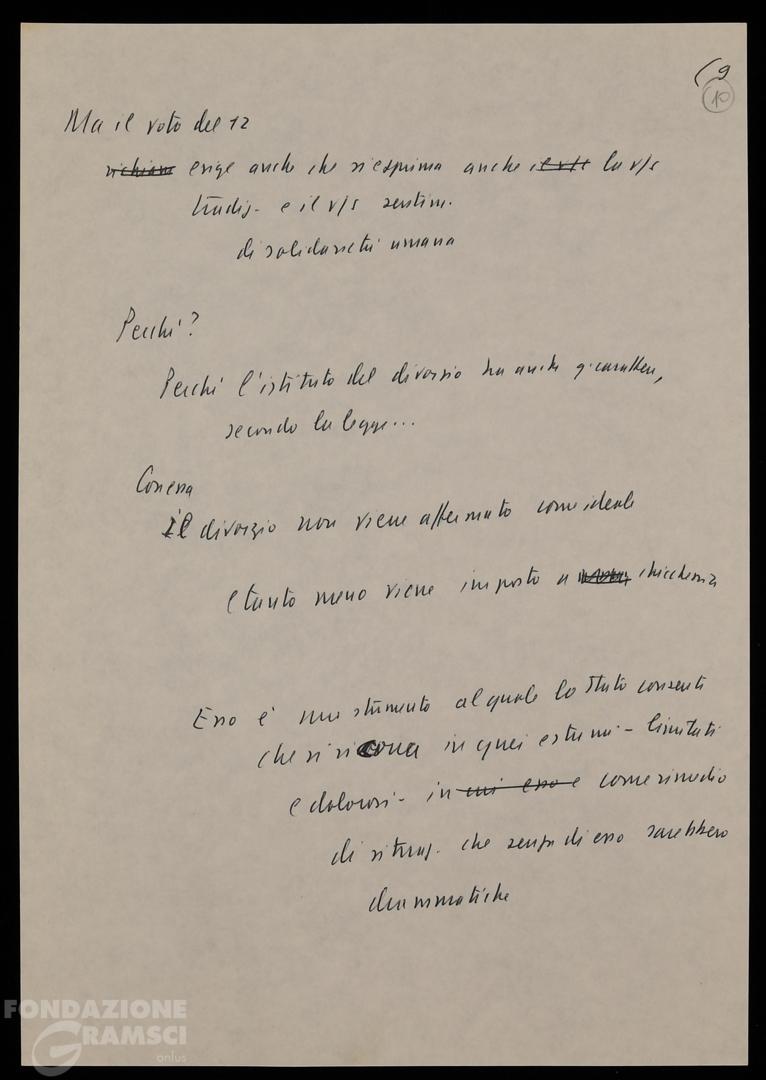 (9
(10)
Ma il voto del 12
richiam esige anche che si esprima anche il v/s la v/s
tradiz. e il v/s sentim.
di solidarietà umana
Perché?
Perché l'istituto del divorzio ha anche q. carattere,
secondo la legge...
Con essa
il divorzio non viene affermato come ideale
e tanto meno viene imposto a chicchessia
Esso è uno strumento al quale lo Stato consente
che si ricorra in quei estremi - limitati
e dolorosi - in cui esso è come rimedio
di situaz. che senza di esso sarebbero
drammatiche
FONDAZIONE
GRAMSCI
onlus